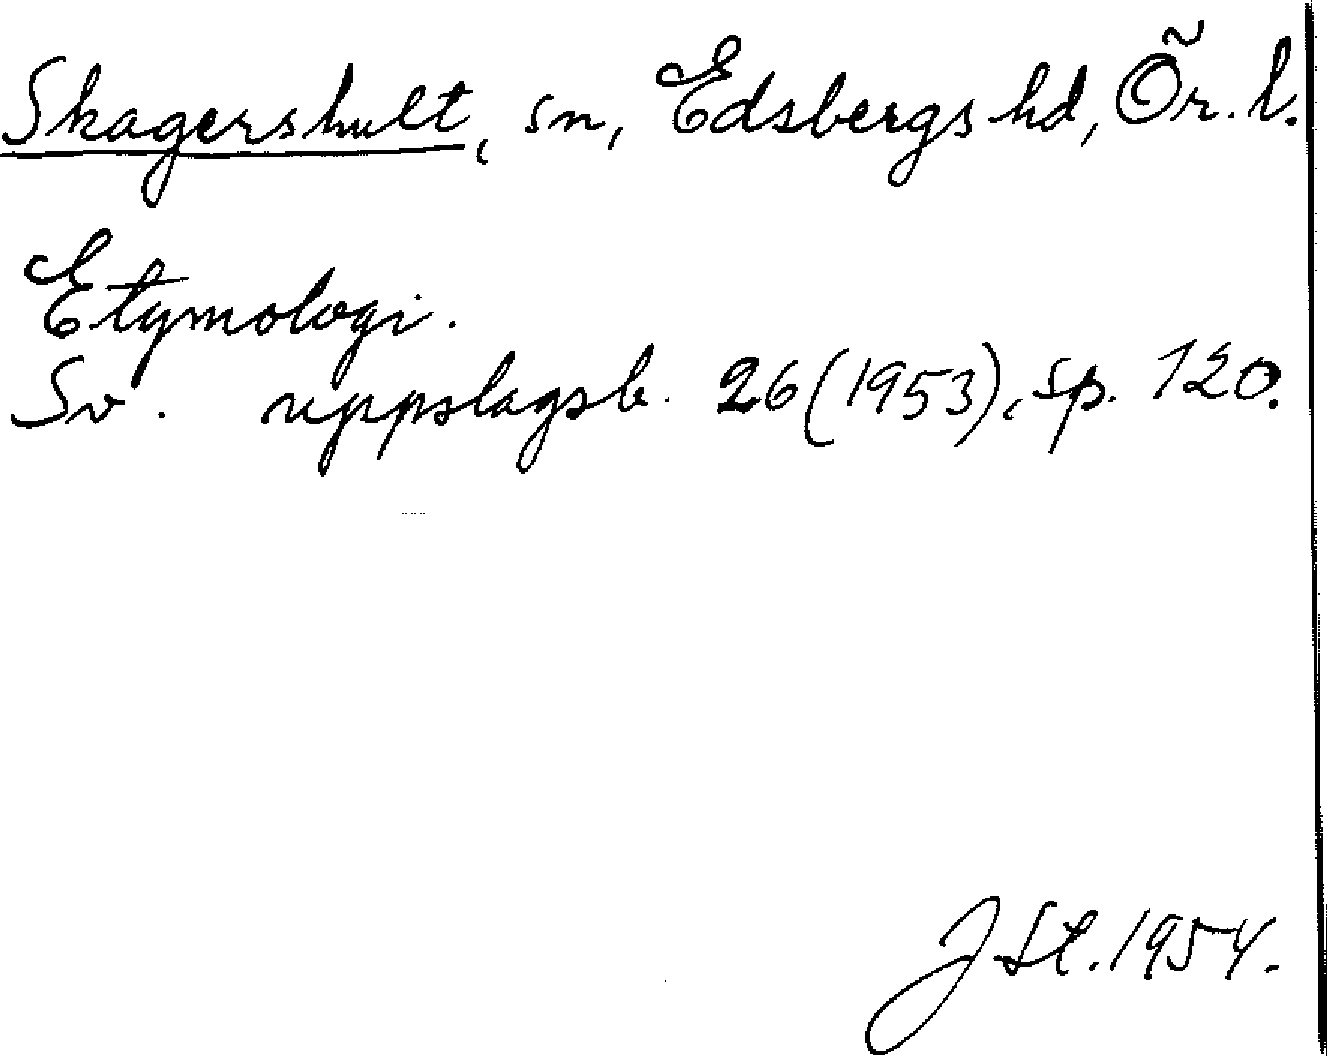 Skagershult, sn, Edsbergs hd, Ör. l.
Etymologi.
Sv. uppslagsb. 26 (1953), sp. 120.
JSt. 1954.